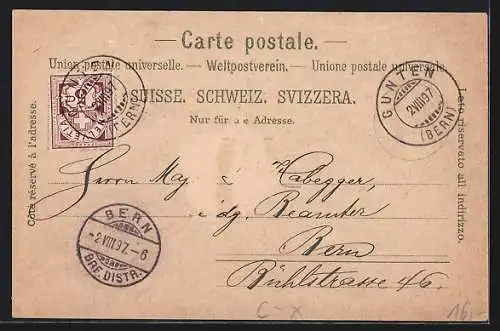 Carte postale.
Union postale universelle. — Weltpostverein. — Unione postale universale.
SUISSE. SCHWEIZ. SVIZZERA.
Nur für die Adresse.
Côté réservé à l'adresse.
Lato riservato all indirizzo.
GUNTEN
2 VIII 97
(BERN)
Herrn Maj. & Habegger,
idg. Beamter
Bern
Bühlstrasse 46.
BERN
-2 VIII 97.-6
BRF. DISTR.
C-X
16,-